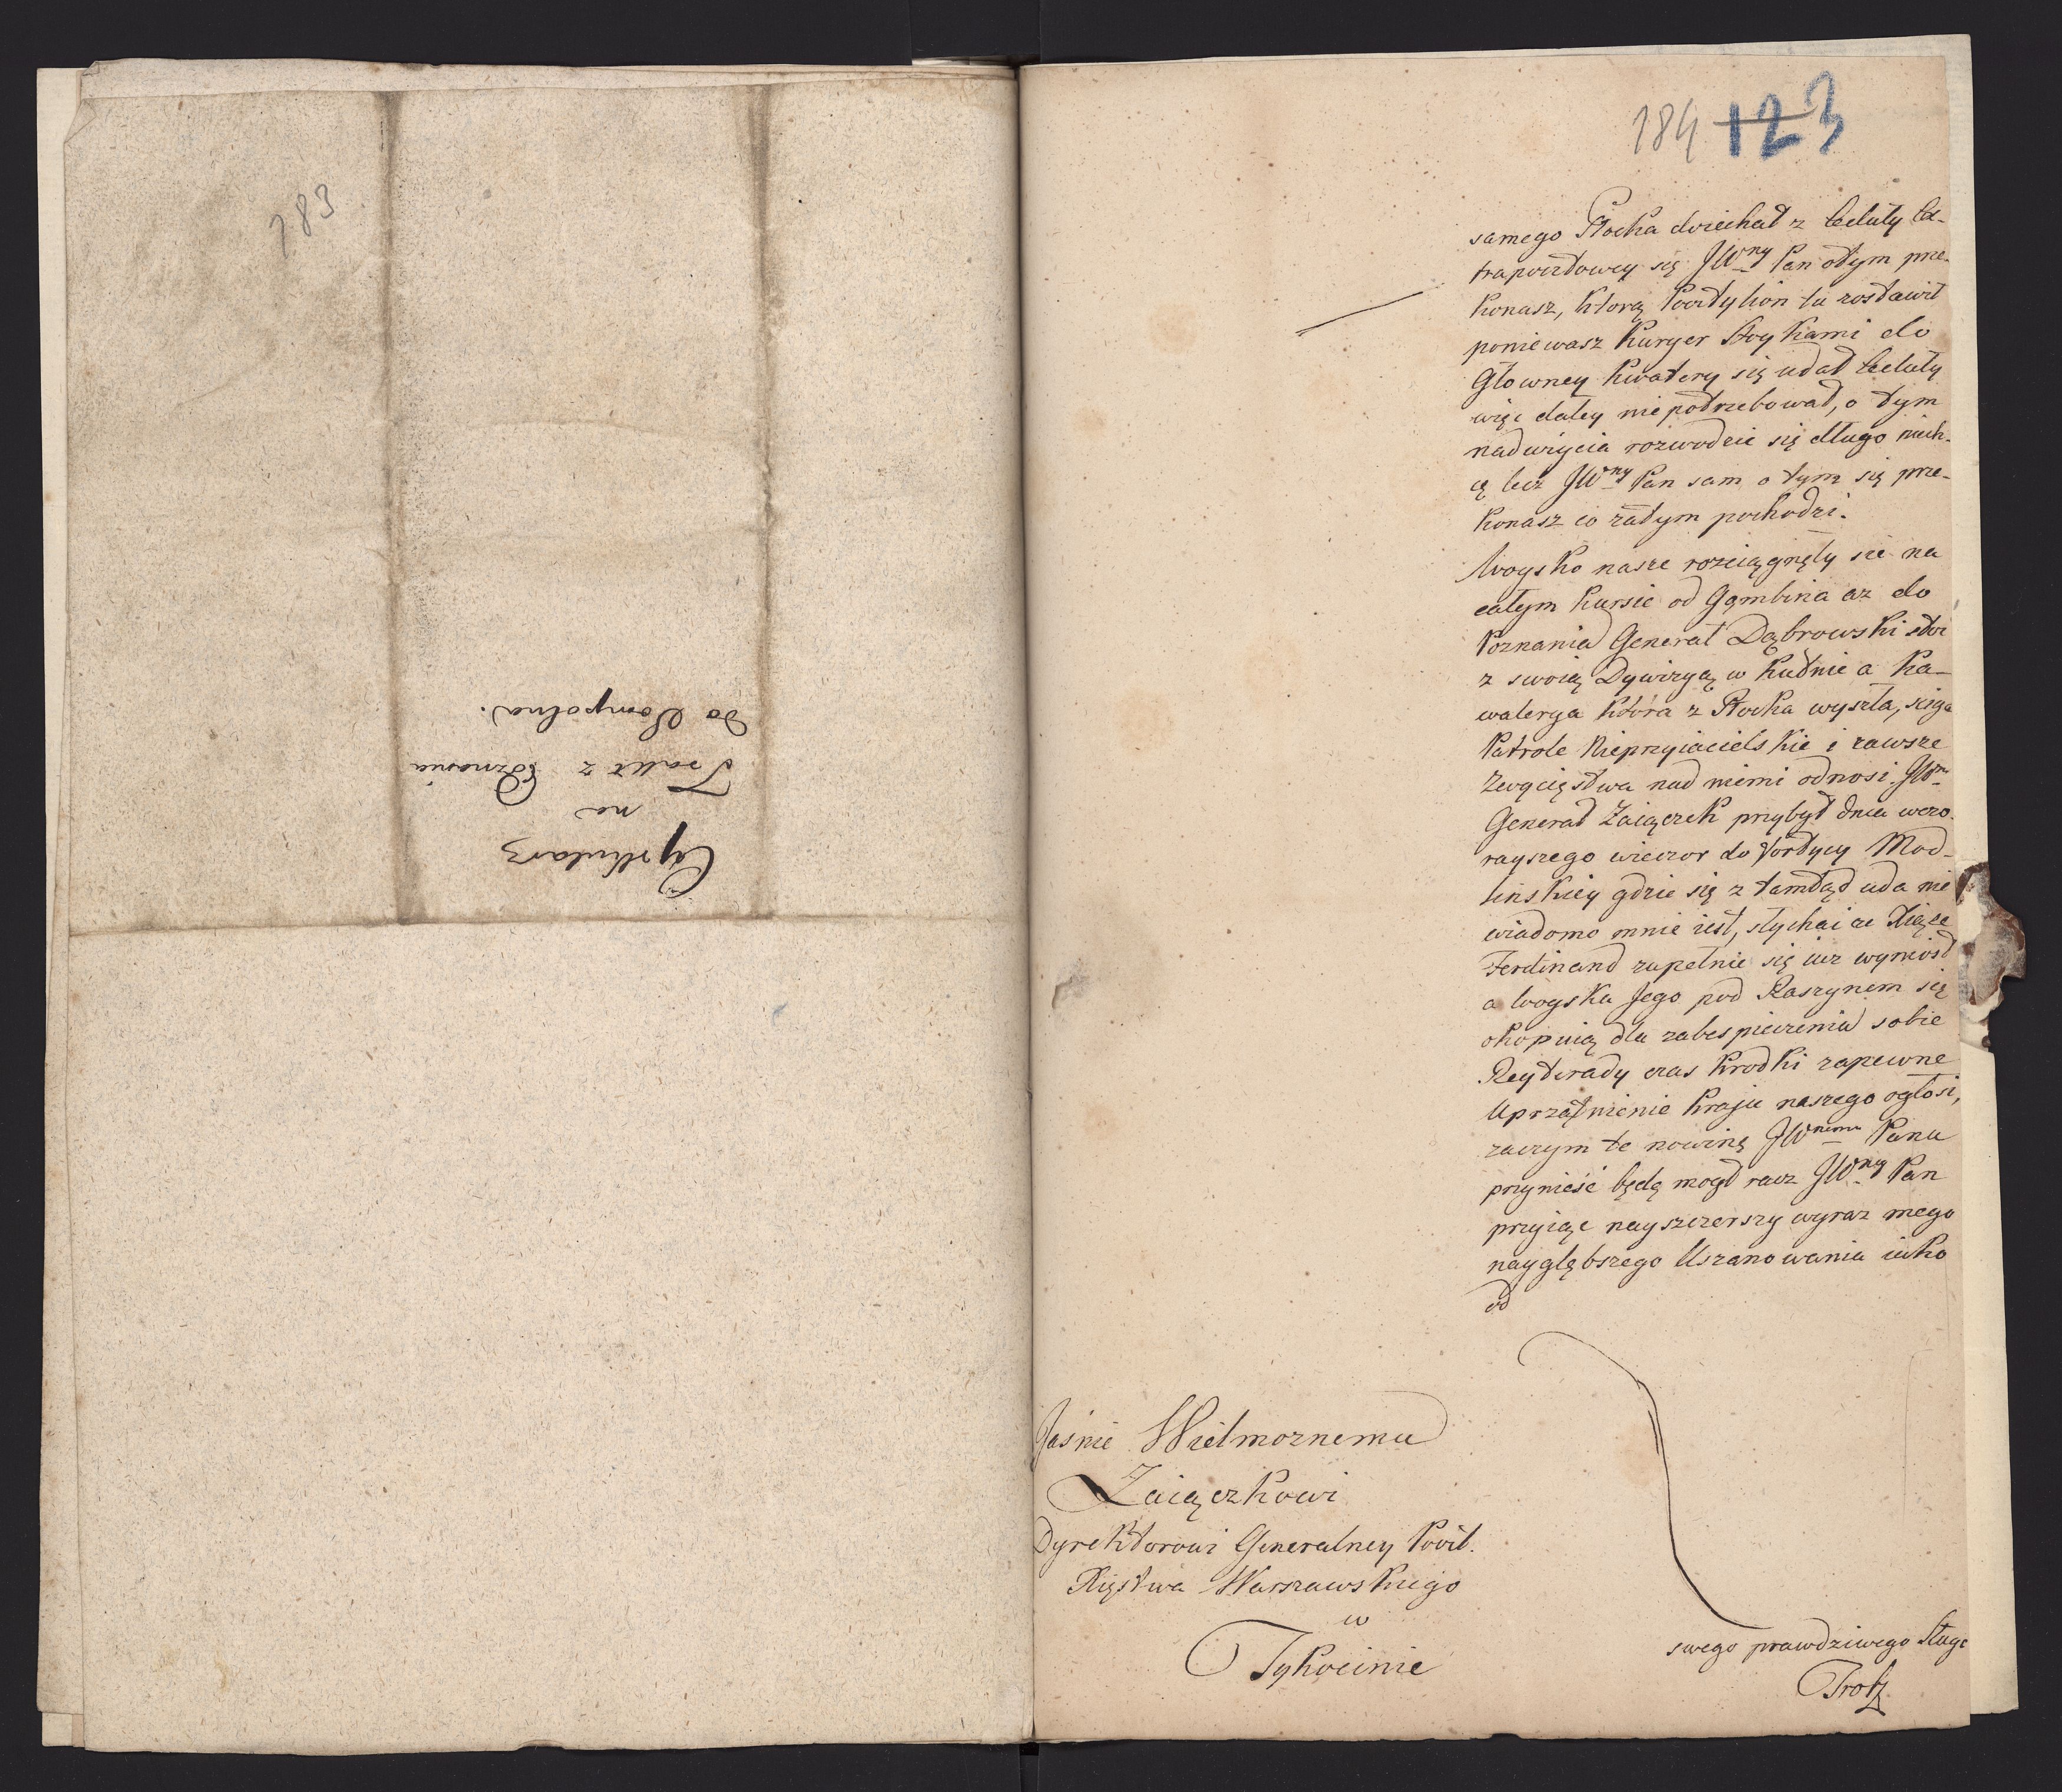 183
Cyrkularz
na
Trakt z Poznania
do Sompolna.
184 123
samego Płocka dziechał z Ceduły Ex-
trapocztowey się JWny Pan otym prze-
konasz, ktorą Pocztylion tu zostawił
poniewasz Kuryer Stoykami do
Głowney Kwatery się udał Ceduły
więc daley niepotrzebował, o tym
nadwyięcia rozwodzić się długo niech-
cę lecz JWny Pan sam o tym się prze-
konasz co zatym pochodzi.
Woysko nasze rozciągnęły sie na
całym Kursie od Gąmbina az do
Poznania Generał Dąbrowski stoi
z swoią Dywizyą w Kutnie a Ka-
walerya która z Płocka wyszła, sciga
Patrole Nieprzyiacielskie i zawsze
Zwycięstwa nad niemi odnosi. JWny
Generał Zaiączek przybył dnia wczo-
rayszego wieczor do Fortycy Mod-
linskiey gdzie się z tamtąd uda nie
wiadomo mnie iest, słychać ze Xiąze
Ferdinand zupełnie się iuz wyniosł
a woyska Jego pod Raszynem się
okopuią dla zabespieczenia sobie
Reyterady czas krodki zapewne
Uprzątnienie Kraju naszego ogłosi,
zaczym te nowinę JWnemu Panu
przynieść będę mogł racz JWny Pan
przyiąc nayszczerszy wyraz mego
naygłębszego Uszanowania iako
od
Jaśnie Wielmoznemu
Zaiączkowi
Dyrektorowi Generalney Poczt.
Xięstwa Warszawskiego
w
Tykocinie
swego prawdziwego Sługi
Trotz